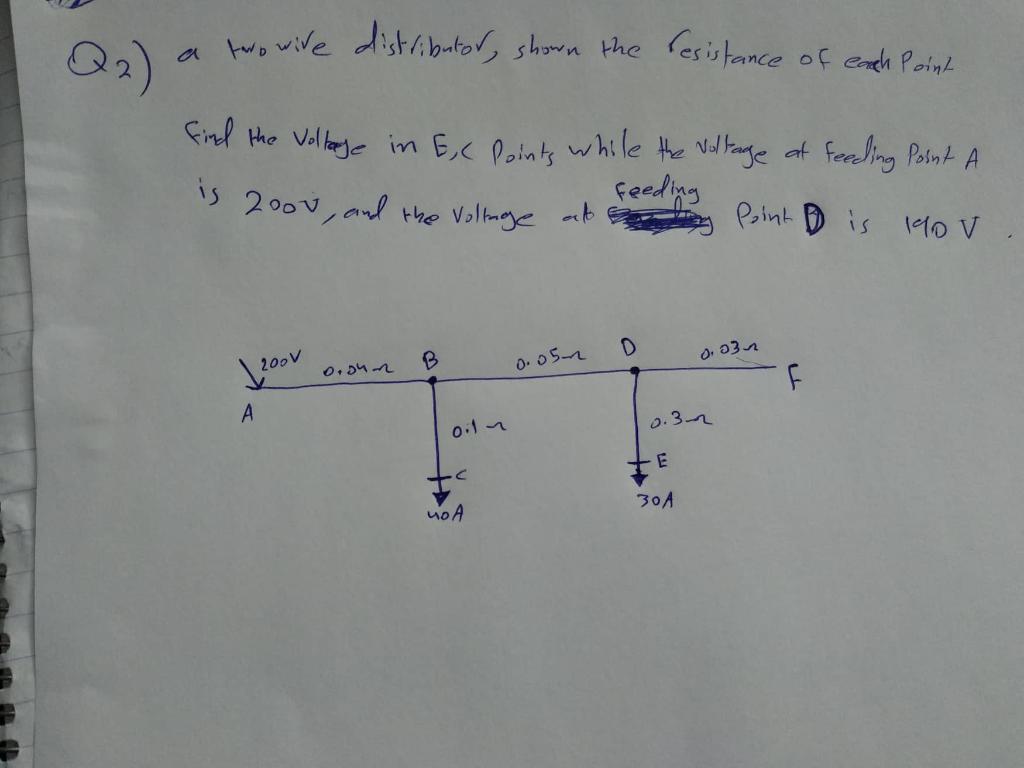 Q2) a two wire distributor, shown the resistance of each Point
Find the Voltage in E,C Points while the voltage at feeding Point A
is 200v, and the voltage at feeding Point D is 190 V.
200V 0.04Ω B 0.05Ω D 0.03Ω F
A
0.1Ω 0.3Ω
C E
40A 30A